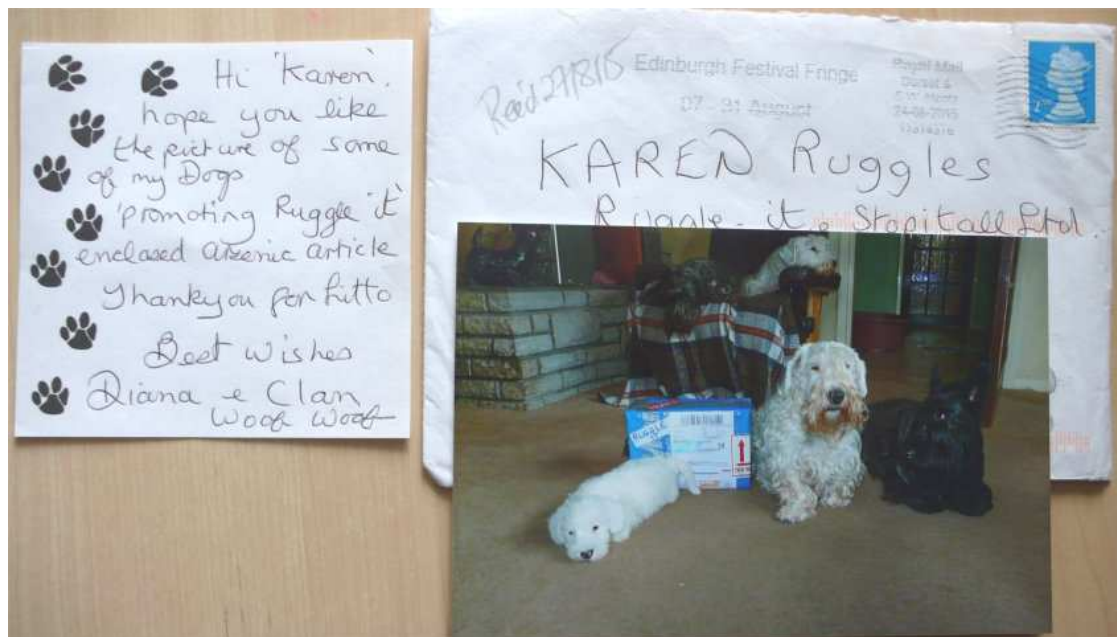 Hi 'Karen',
hope you like
the picture of some
of my Dogs
'promoting Ruggle it'
enclosed arsenic article
Thankyou for
Best wishes
Diana & Clan
Woof Woof
Rec'd 27/8/15
Edinburgh Festival Fringe
07 - 31 August
Royal Mail
Dorset &
S.W. Hants
24-08-2015
KAREN Ruggles
Ruggle-it, Stopitall Ltd.
RUGGLE